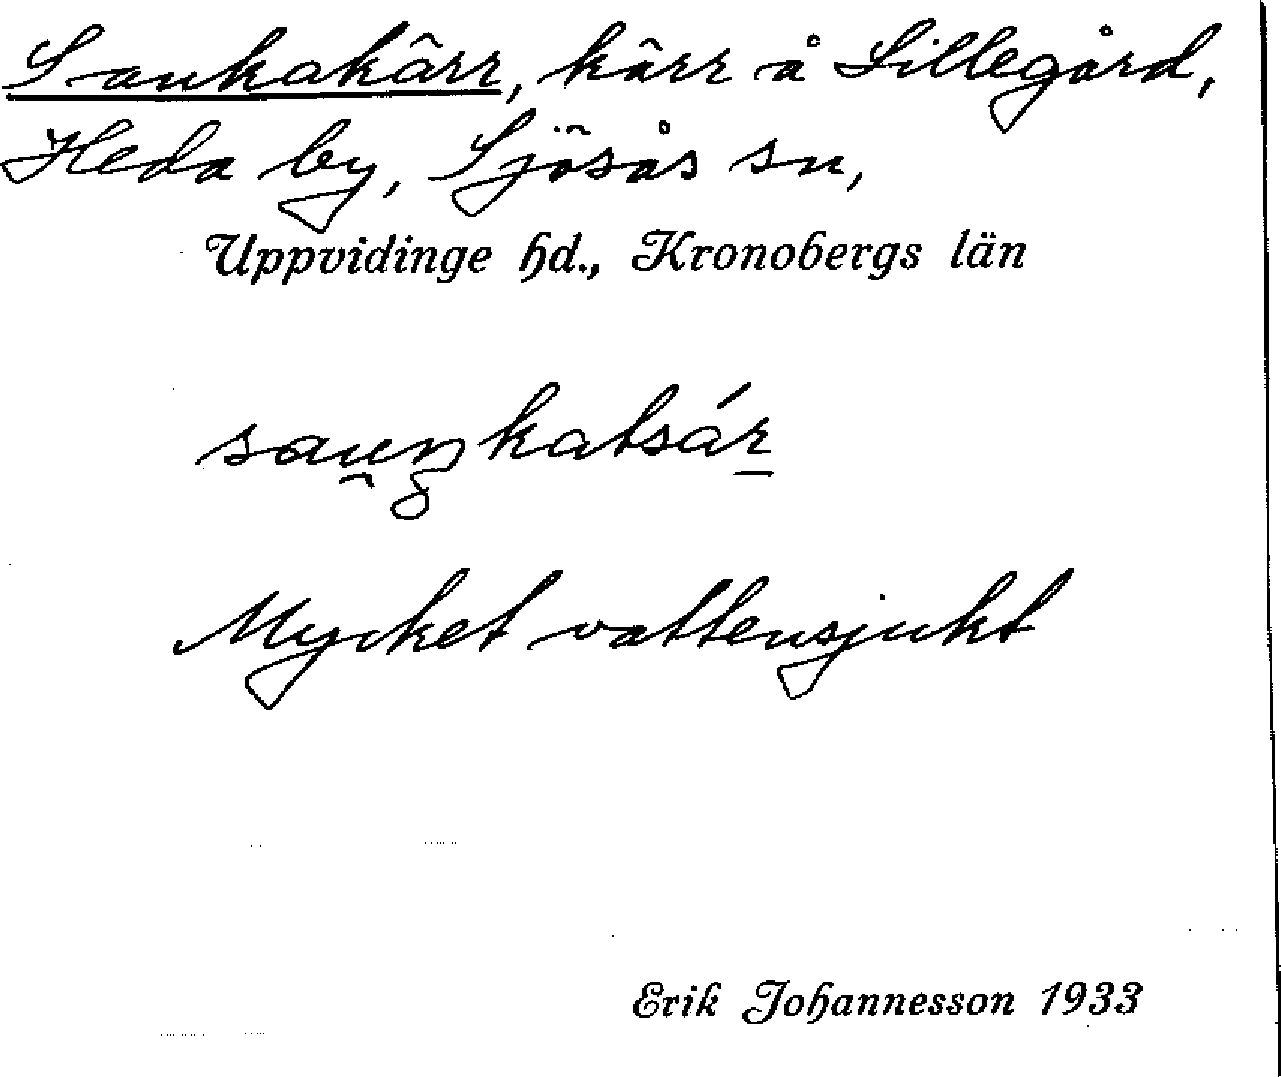 Sankakärr, kärr å Lillegård,
Heda by, Sjösås sn,
Uppvidinge hd., Kronobergs län
Mycket vattensjukt
Erik Johannesson 1933